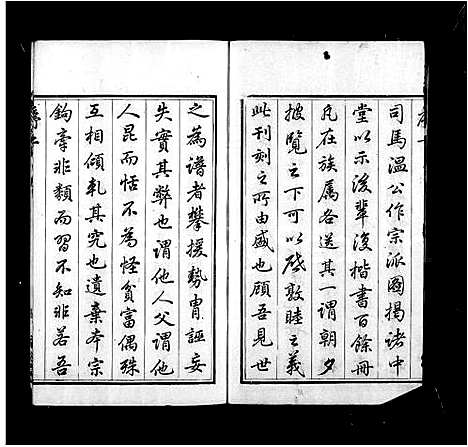 司馬温公作宗派圖揭諸中
堂以示後輩復楷書百餘冊
凡在族属各送其一謂朝夕
披覽之下可以啟敦睦之義
此刊刻之所由盛也顧吾見世
之為譜者攀援勢冑誣妄
失實其弊也謂他人父謂他
人昆而恬不為怪貧富偶殊
互相傾軋其究也遺棄本宗
鉤牽非類而習不知非若吾